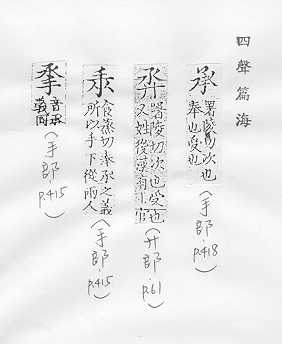 四聲篇海
承 署陵切次也
奉也受也
(手部.p.418)
署陵切次也受也
又姓後漢有
官
(廾部.p.61)
食蒸切奉承之義
所以手下從兩人
(手部.p.415)
音承
義同
(手部.p.415)